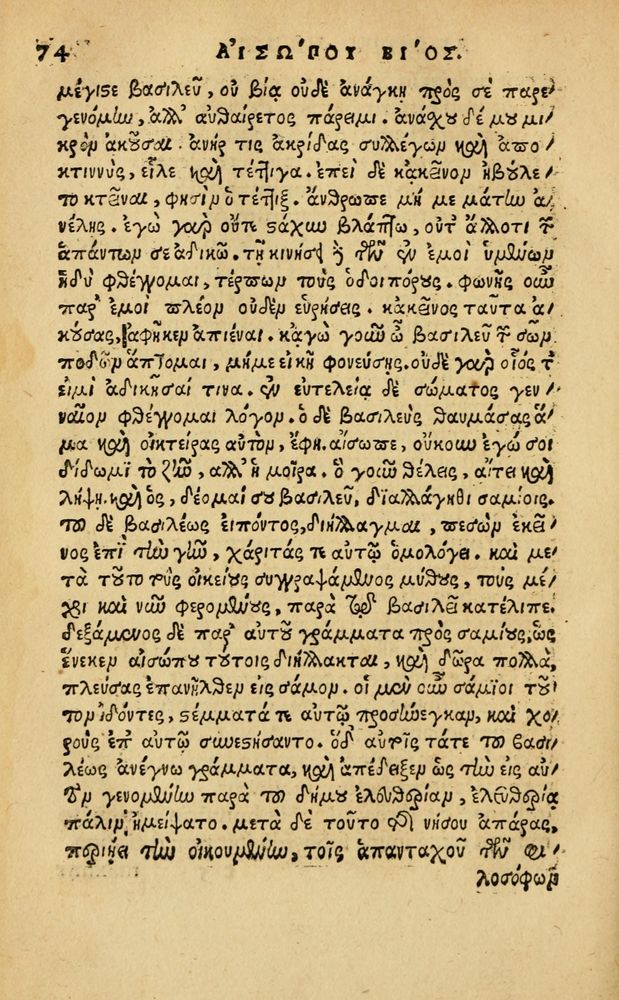 74 ΑἸΣΩΠΟΥ ΒΙΟΣ.
μέγιστε βασιλεῦ, οὐ βίᾳ οὐδὲ ἀνάγκῃ πρὸς σὲ παρε
γενόμην, ἀλλ' αὐθαίρετος πάρειμι. ἀνάχου δέ μου μι
κρὸν ἀκοῦσαι. ἀνήρ τις ἀκρίδας συλλέγων καὶ ἀπο
κτιννὺς, εἷλε καὶ τέττιγα. ἐπεὶ δὲ κἀκεῖνον ἠβούλε
το κτεῖναι, φησὶν ὁ τέττιξ. ἄνθρωπε μή με μάτην ἀ
νέλῃς. ἐγὼ γὰρ οὔτε στάχυν βλάπτω, οὔτ' ἄλλο τι τῶν
ἁπάντων σε ἀδικῶ. τῇ κινήσει δὲ τῶν ἐν ἐμοὶ ὑμένων
ἡδὺ φθέγγομαι, τέρπων τοὺς ὁδοιπόρους. φωνῆς οὖν
παρ' ἐμοὶ πλέον οὐδὲν εὑρήσεις. κἀκεῖνος ταῦτα ἀ
κούσας, ἀφῆκεν ἀπιέναι. κἀγὼ γοῦν ὦ βασιλεῦ τῶν σῶν
ποδῶν ἅπτομαι, μή με εἰκῆ φονεύσῃς. οὐδὲ γὰρ οἷός τ'
εἰμὶ ἀδικῆσαί τινα. ἐν εὐτελείᾳ δὲ σώματος γεν
ναῖον φθέγγομαι λόγον. ὁ δὲ βασιλεὺς θαυμάσας ἅ
μα καὶ οἰκτείρας αὐτὸν, ἔφη. αἴσωπε, οὐκ οὖν ἐγώ σοι
δίδωμι τὸ ζῆν, ἀλλ' ἡ μοῖρα. ὃ γοῦν θέλεις, αἴτει καὶ
λήψῃ. καὶ ὃς, δέομαί σου βασιλεῦ, διαλλάγηθι σαμίοις.
τοῦ δὲ βασιλέως εἰπόντος, διήλλαγμαι, πεσὼν ἐκεῖ
νος ἐπὶ τὴν γῆν, χάριτάς τε αὐτῷ ὁμολόγει. καὶ με
τὰ τοῦτο τοὺς οἰκείους συγγραψάμενος μύθους, τοὺς μέ
χρι καὶ νῦν φερομένους, παρὰ τῷ βασιλεῖ κατέλιπε.
δεξάμενος δὲ παρ' αὐτοῦ γράμματα πρὸς σαμίους, ὡς
ἕνεκεν αἰσώπου τούτοις διήλλακται, καὶ δῶρα πολλὰ,
πλεύσας ἐπανῆλθεν εἰς σάμον. οἱ μὲν οὖν σάμιοι τοῦ
τον ἰδόντες, στέμματά τε αὐτῷ προσήνεγκαν, καὶ χο
ροὺς ἐπ' αὐτῷ συνεστήσαντο. ὁ δ' αὐτοῖς τά τε τοῦ βασι
λέως ἀνέγνω γράμματα, καὶ ἀπέδειξεν ὡς τὴν εἰς αὐ
τὸν γενομένην παρὰ τοῦ δήμου ἐλευθερίαν, ἐλευθερίᾳ
πάλιν ἠμείψατο. μετὰ δὲ τοῦτο τῆς νήσου ἀπάρας,
περιῄει τὴν οἰκουμένην, τοῖς ἁπανταχοῦ τῶν φι
λοσόφων